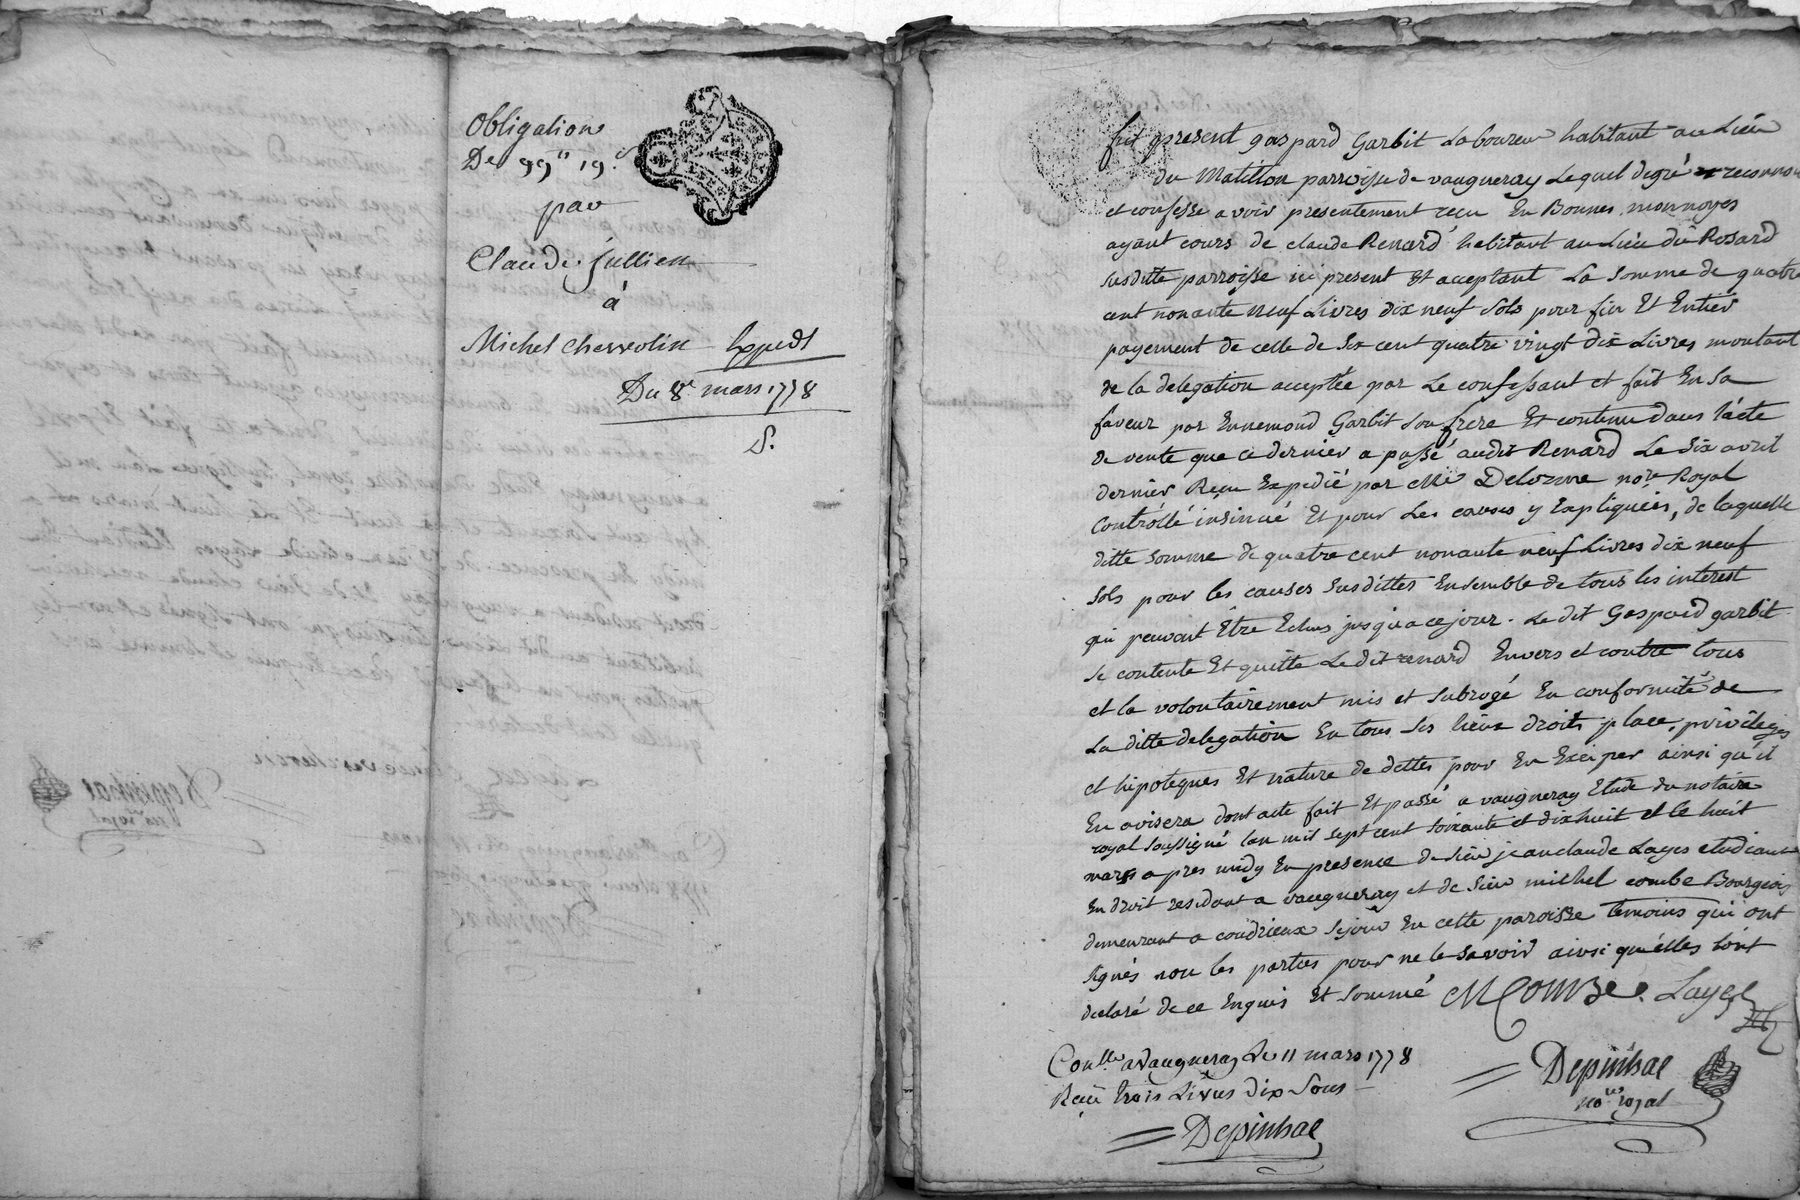 Obligation
De 99ᴴ 19ˢ
par
Claude Jullien
à
Michel Chervolin Expedt
Du 8e mars 1778
S.
fut present gaspard Garbit Laboureur habitant au Lieu
du Matillon parroisse de vaugneray Lequel degré reconnoi
et confesse avoir presentement reçu En Bonnes monnoyes
ayant cours de claude Renard habitant au Lieu du Rosard
susditte parroisse ici present Et acceptant La somme de quatre
cent nonante neuf Livres dix neuf sols pour fin Et Entier
payement de celle de six cent quatre vingt dix Livres montant
de la delegation acceptée par Le confessant et fait En sa
faveur par Ennemond Garbit son frere Et contenu dans l'acte
de vente que ce dernier a passé audit Renard Le dix avril
dernier Reçu Expedié par Me Delorme nore Royal
Controllé insinué Et pour Les causes y Expliquées, de laquelle
ditte somme de quatre cent nonante neuf Livres dix neuf
sols pour les causes susdittes Ensemble de tous les interest
qui peuvent Être Echus jusqu'a ce jour. Le dit Gaspard garbit
se contente Et quitte Le dit renard Envers et contre tous
et la volontairement mis et subrogé En conformité de
La ditte delegation En tous ses lieux droits place, privileges
et hipoteques Et nature de dettes pour En Exciper ainsi qu'il
En avisera dont acte fait Et passé a vaugneray Etude du notaire
royal soussigné l'an mil sept cent soixante et dix huit et le huit
mars apres midy En presence de sieur jean claude Layes etudiant
En droit residant a vaugneray et de sieur michel combe Bourgeois
demeurant a condrieux sejour En cette paroisse temoins qui ont
signés non les parties pour ne le savoir ainsi qu'elles l'ont
declaré de ce Enquis Et sommé MCombe. Layes
Conllé a Vaugneray Le 11 mars 1778
Reçu trois Livres dix sous
Depinhac
Depinhac
nore royal